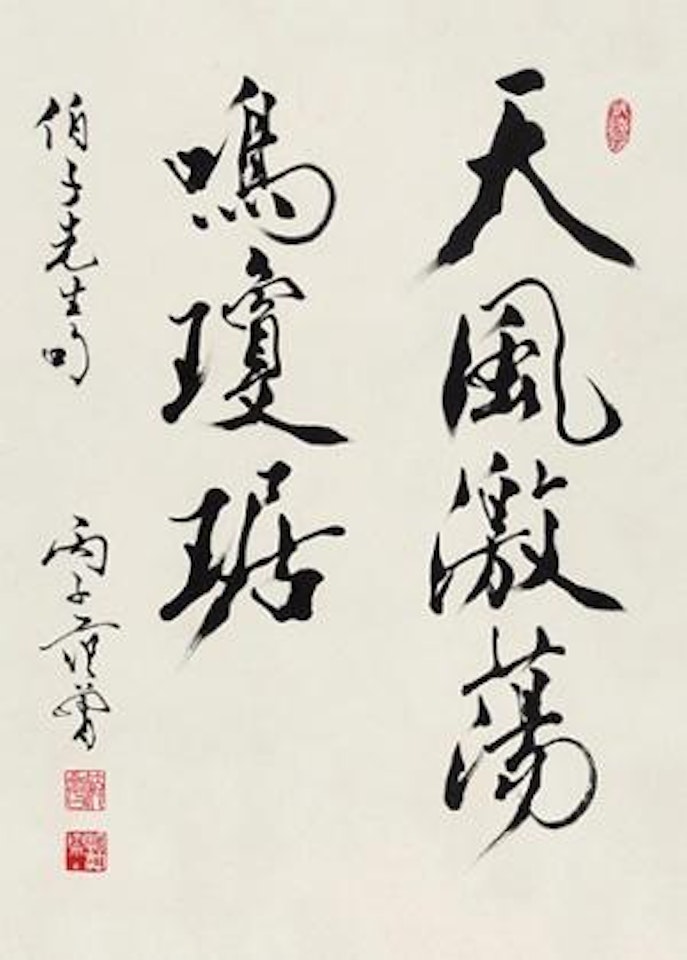 天風激蕩
鳴瓊琚
伯子先生句 丙子范曾